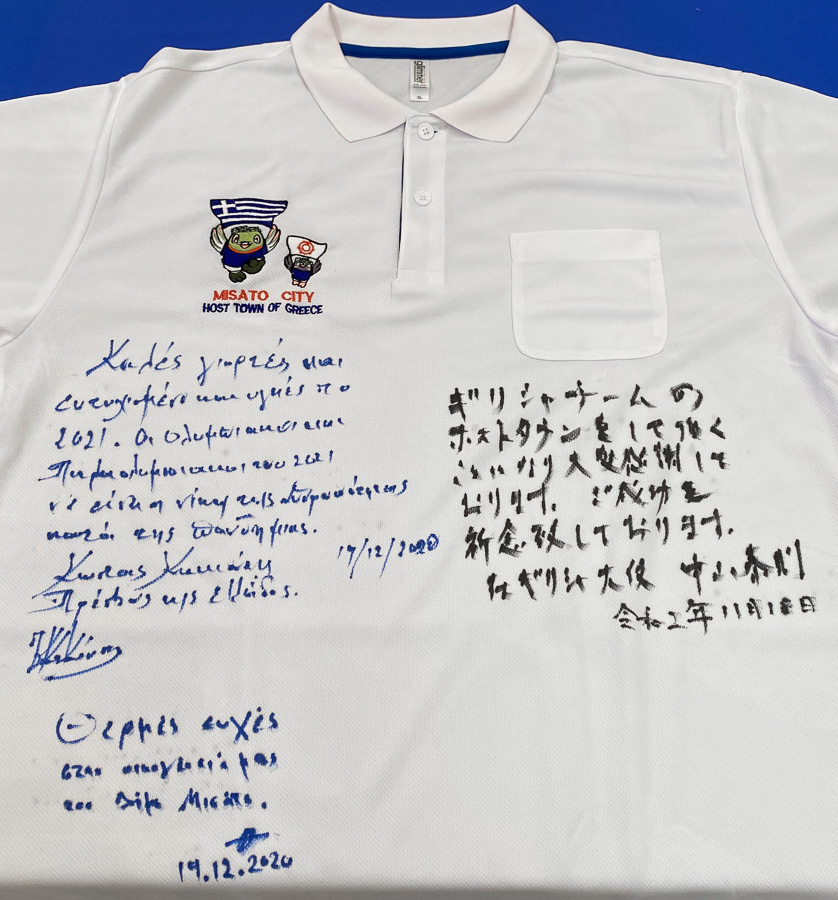 glimmer
3L
MISATO CITY
HOST TOWN OF GREECE
Καλές γιορτές και
ευτυχισμένο και υγιές το
2021. Οι Ολυμπιακοί και
Παραολυμπιακοί του 2021
να είναι η νίκη της ανθρωπότητας
κατά της πανδημίας.
17/12/2020
Κώστας Κακιούσης
Πρέσβυς της Ελλάδος.
Θερμές ευχές
στην οικογένειά μας
του Δήμου Μισάτο.
19.12.2020
ギリシャチームの
ホストタウンをして頂く
大変感謝して
おります。ご成功を
祈念致しております。
在ギリシャ大使 中山泰則
令和2年11月18日